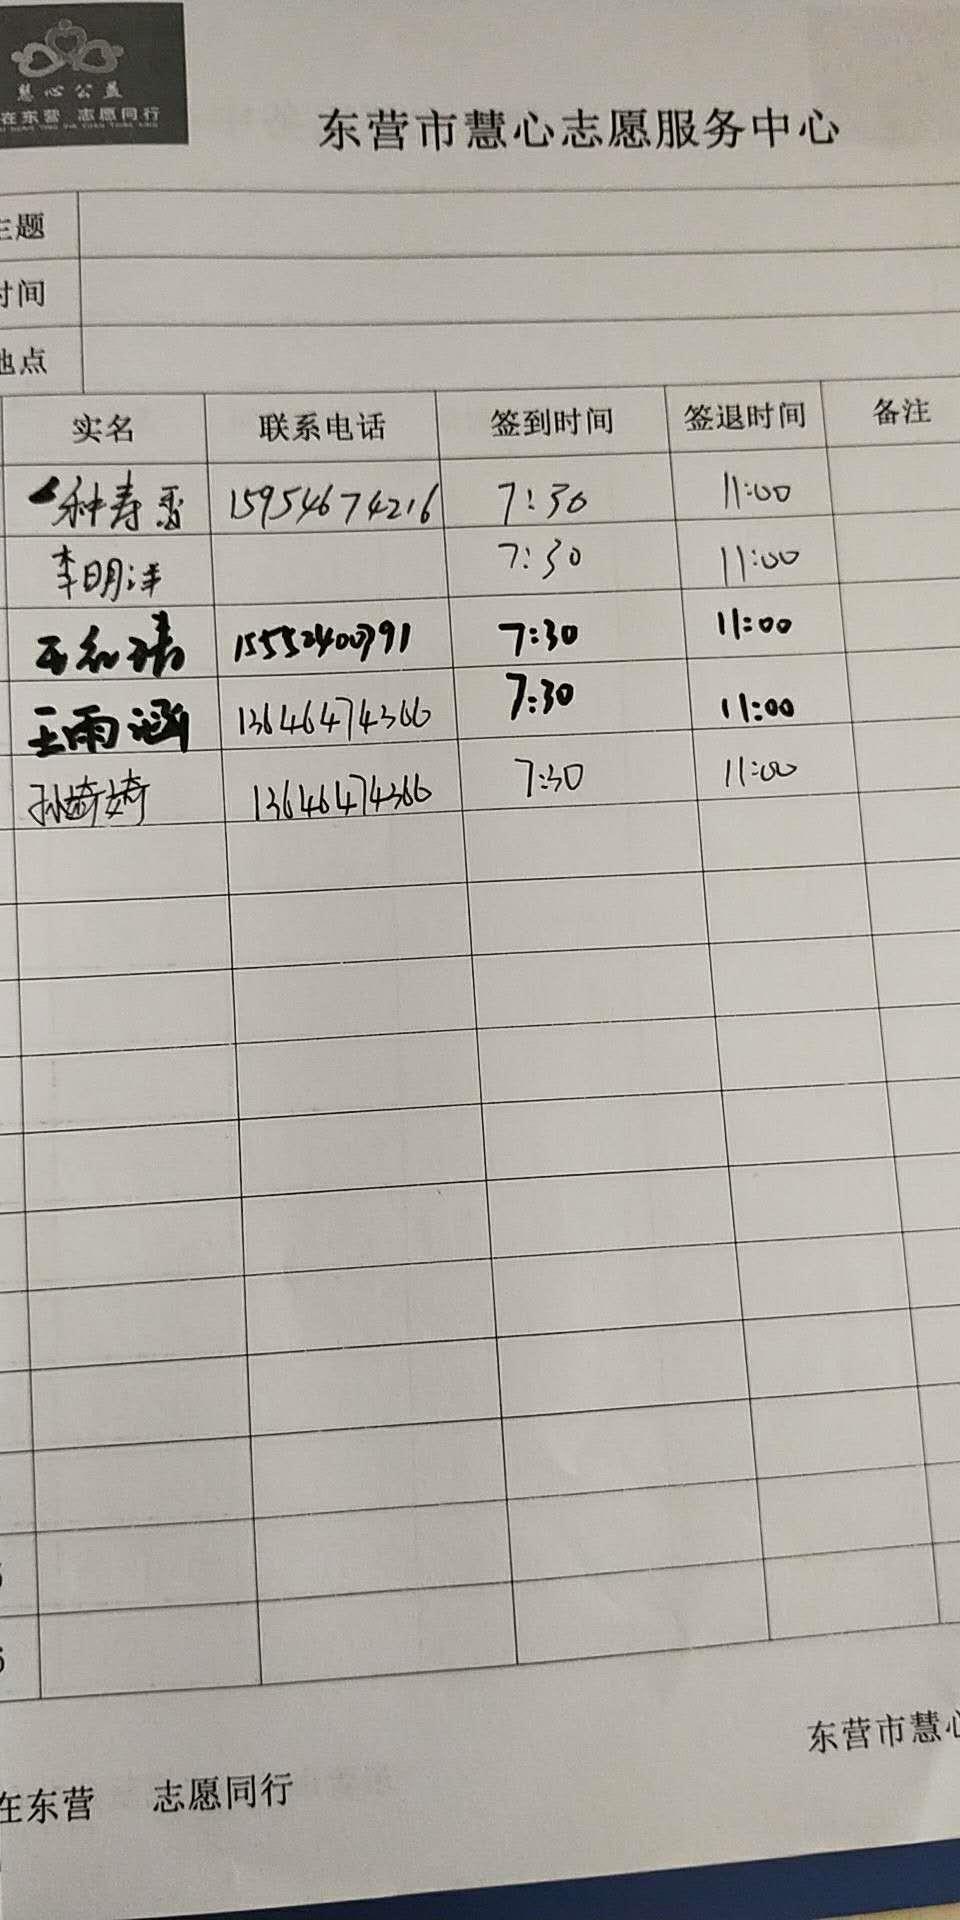 慧心公益
在东营 志愿同行
东营市慧心志愿服务中心
主题
时间
地点
实名 联系电话 签到时间 签退时间 备注
种寿香 15954674216 7:30 11:00
李明洋 7:30 11:00
15552400791 7:30 11:00
王雨涵 13646474366 7:30 11:00
孙婍婍 13646474366 7:30 11:00
5
6
东营市慧心
在东营 志愿同行